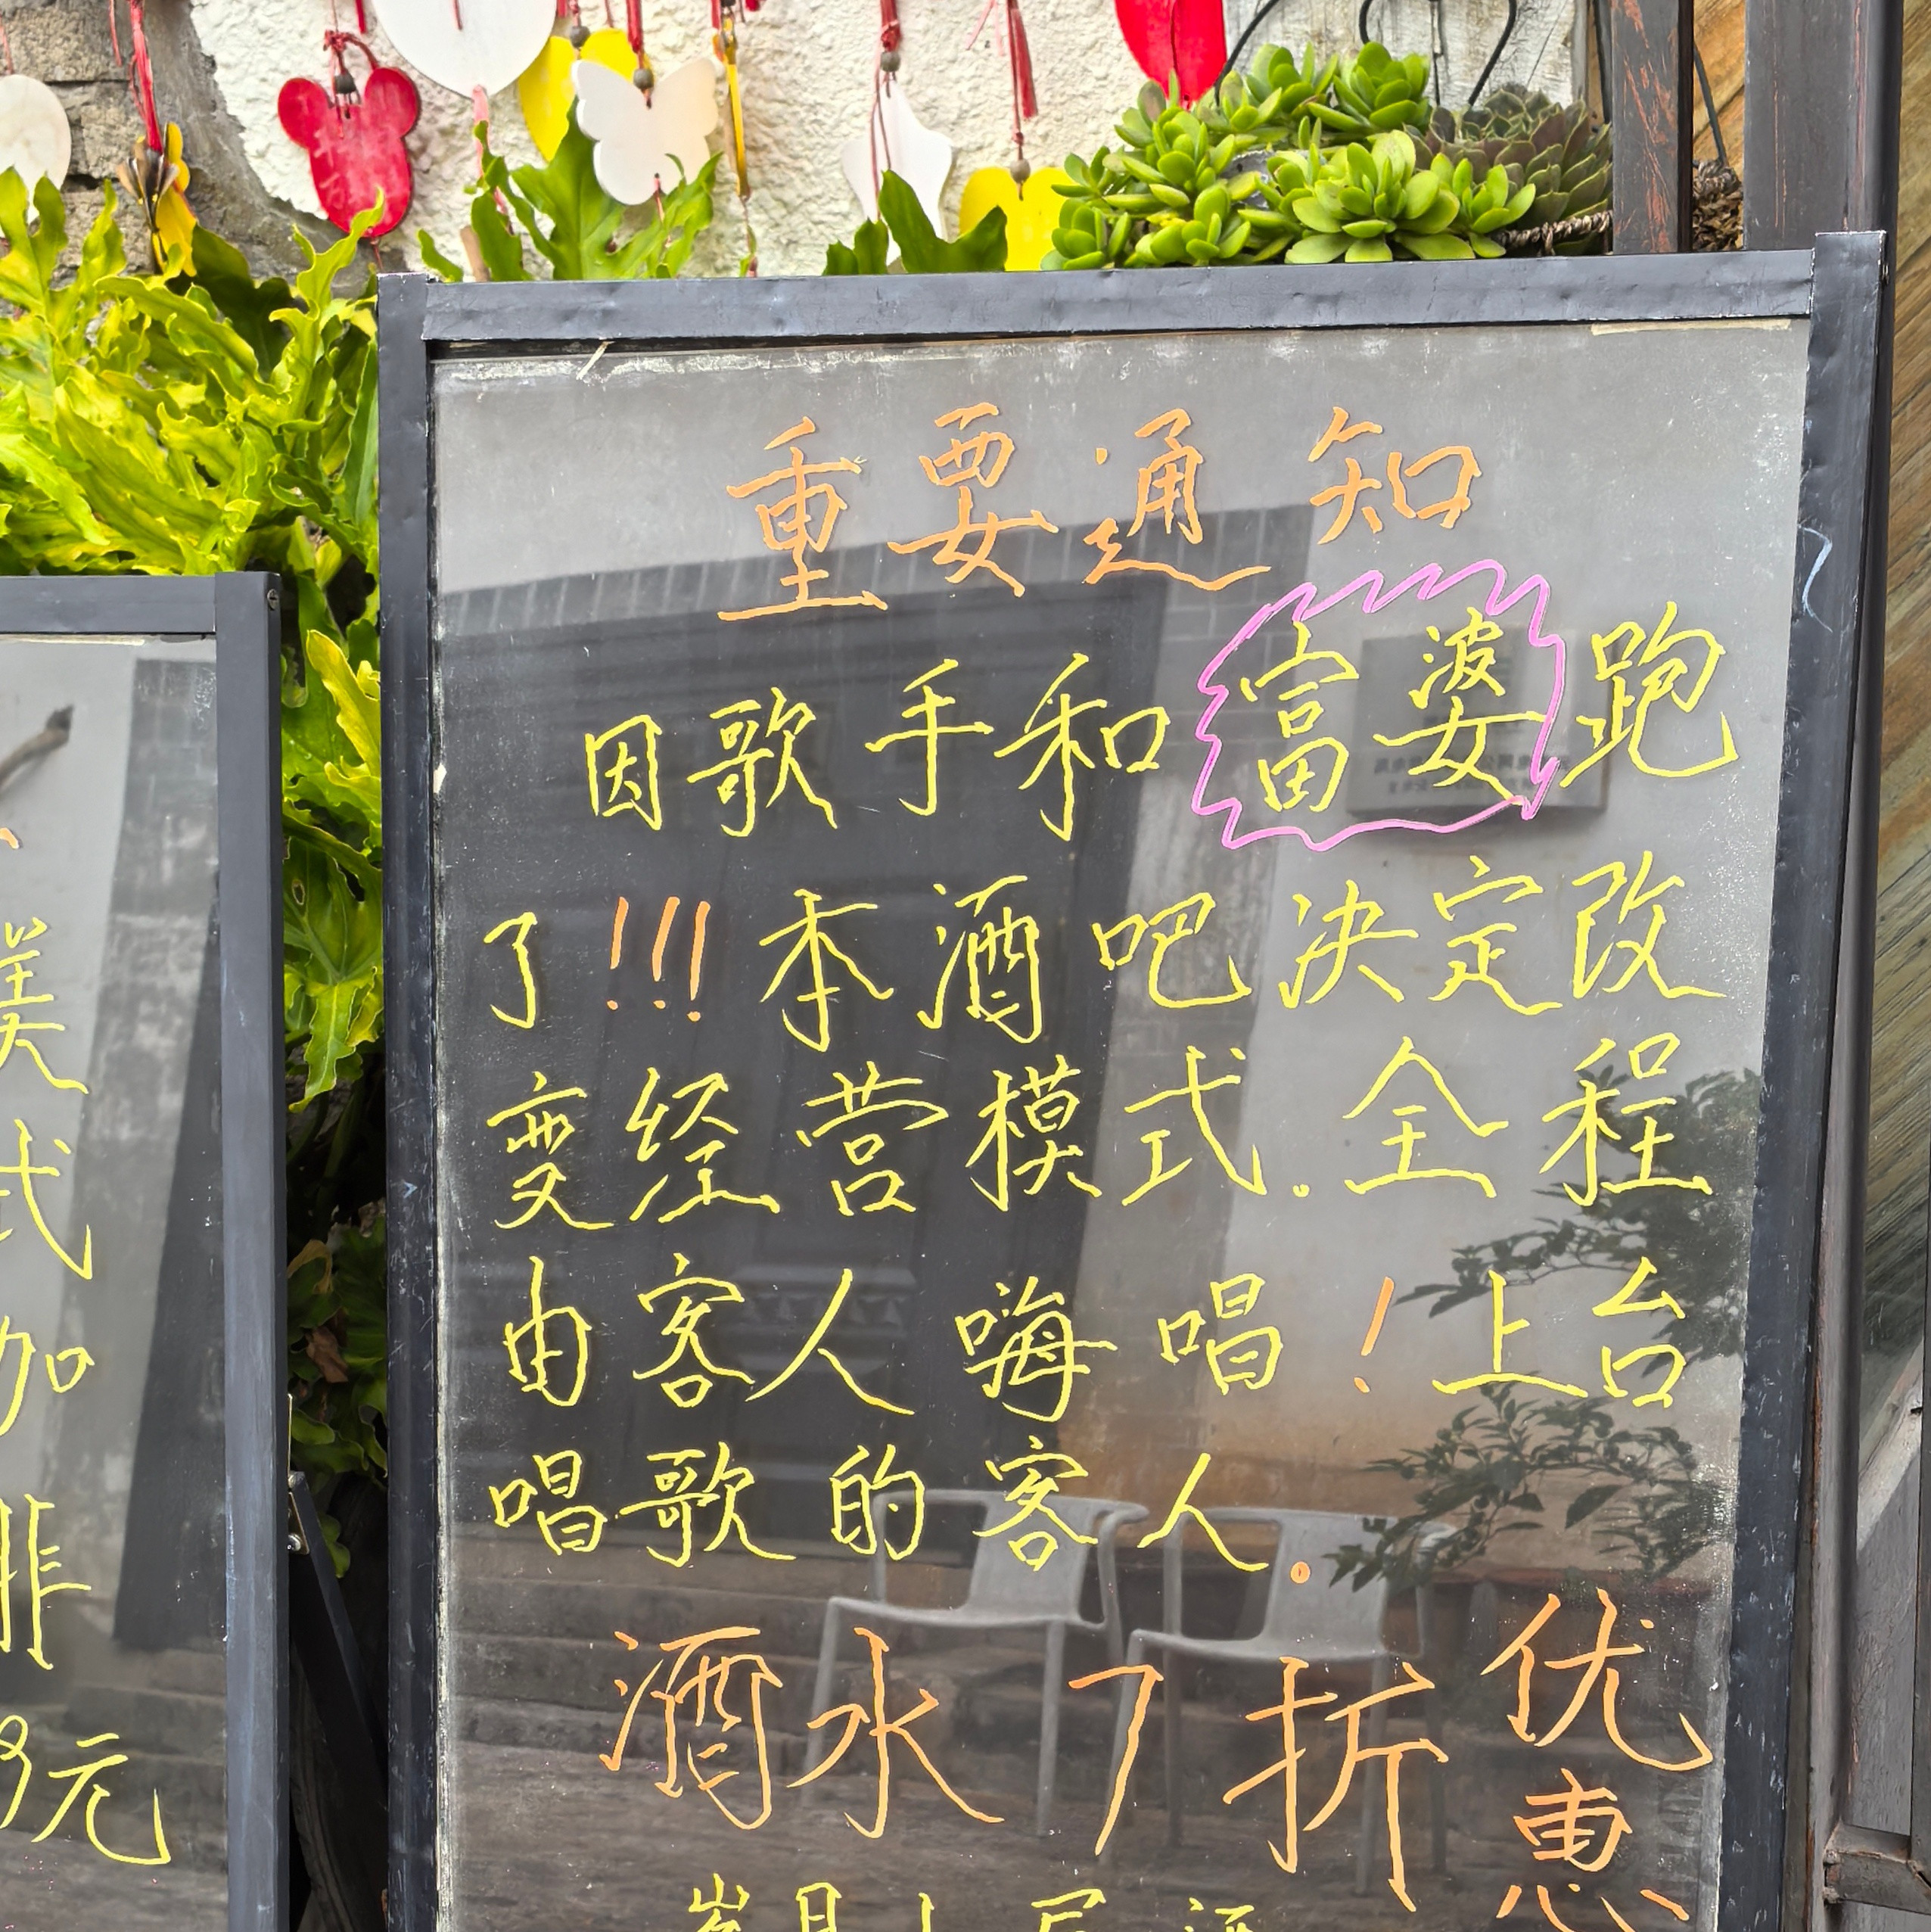 重要通知
因歌手和富婆跑
了!!!本酒吧决定改
变经营模式.全程
由客人嗨唱!上台
唱歌的客人.
酒水7折优惠
美式咖啡
元